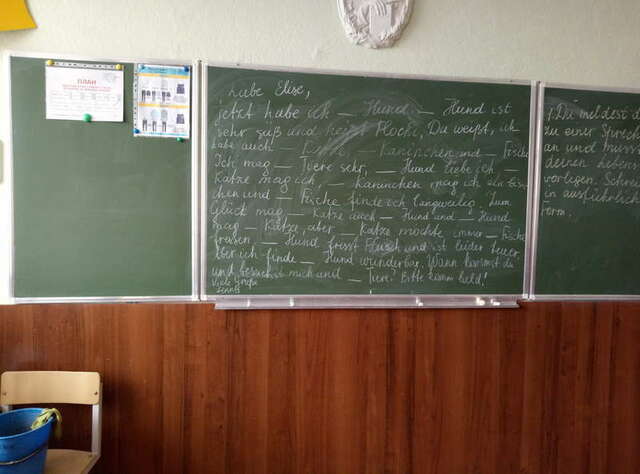 ПЛАН
Liebe Elise,
jetzt habe ich — Hund. — Hund ist
sehr süß und heißt Flocki. Du weißt, ich
habe auch — Katze, — Kaninchen und — Fische
Ich mag — Tiere sehr, — Hund liebe ich —
Katze mag ich, — Kaninchen mag ich ein biss-
chen und — Fische finde ich langweilig. Zum
Glück mag — Katze auch — Hund und — Hund
mag — Katze, aber — Katze möchte immer — Fische
fressen. — Hund frisst Fleisch und ist leider teuer
aber ich finde — Hund wunderbar. Wann kommst du
und besuchst mich und — Tiere? Bitte komm bald!
Viele Grüße
1. Du meldest d
zu einer Sprach
an und musst
deinen Lebens
vorlegen. Schrei
in ausführlich
Form.